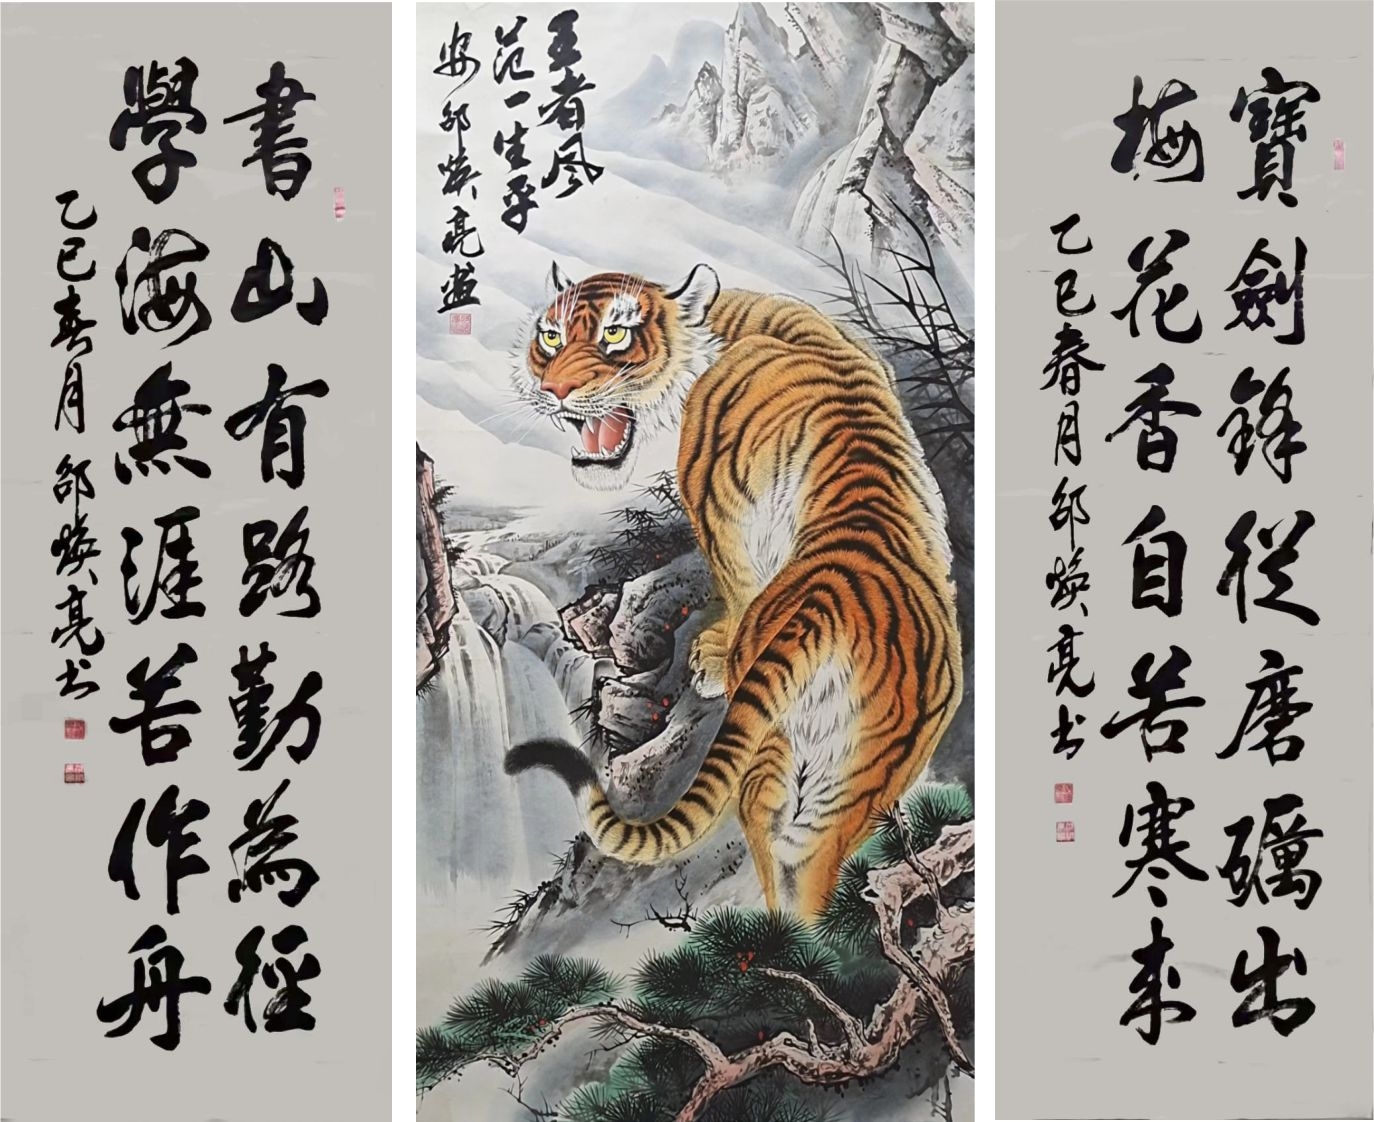 寶劍鋒從磨礪出
梅花香自苦寒來
乙巳春月邵煥亮书
王者风
范一生平
安邵煥亮画
書山有路勤為徑
學海無涯苦作舟
乙巳春月邵煥亮书